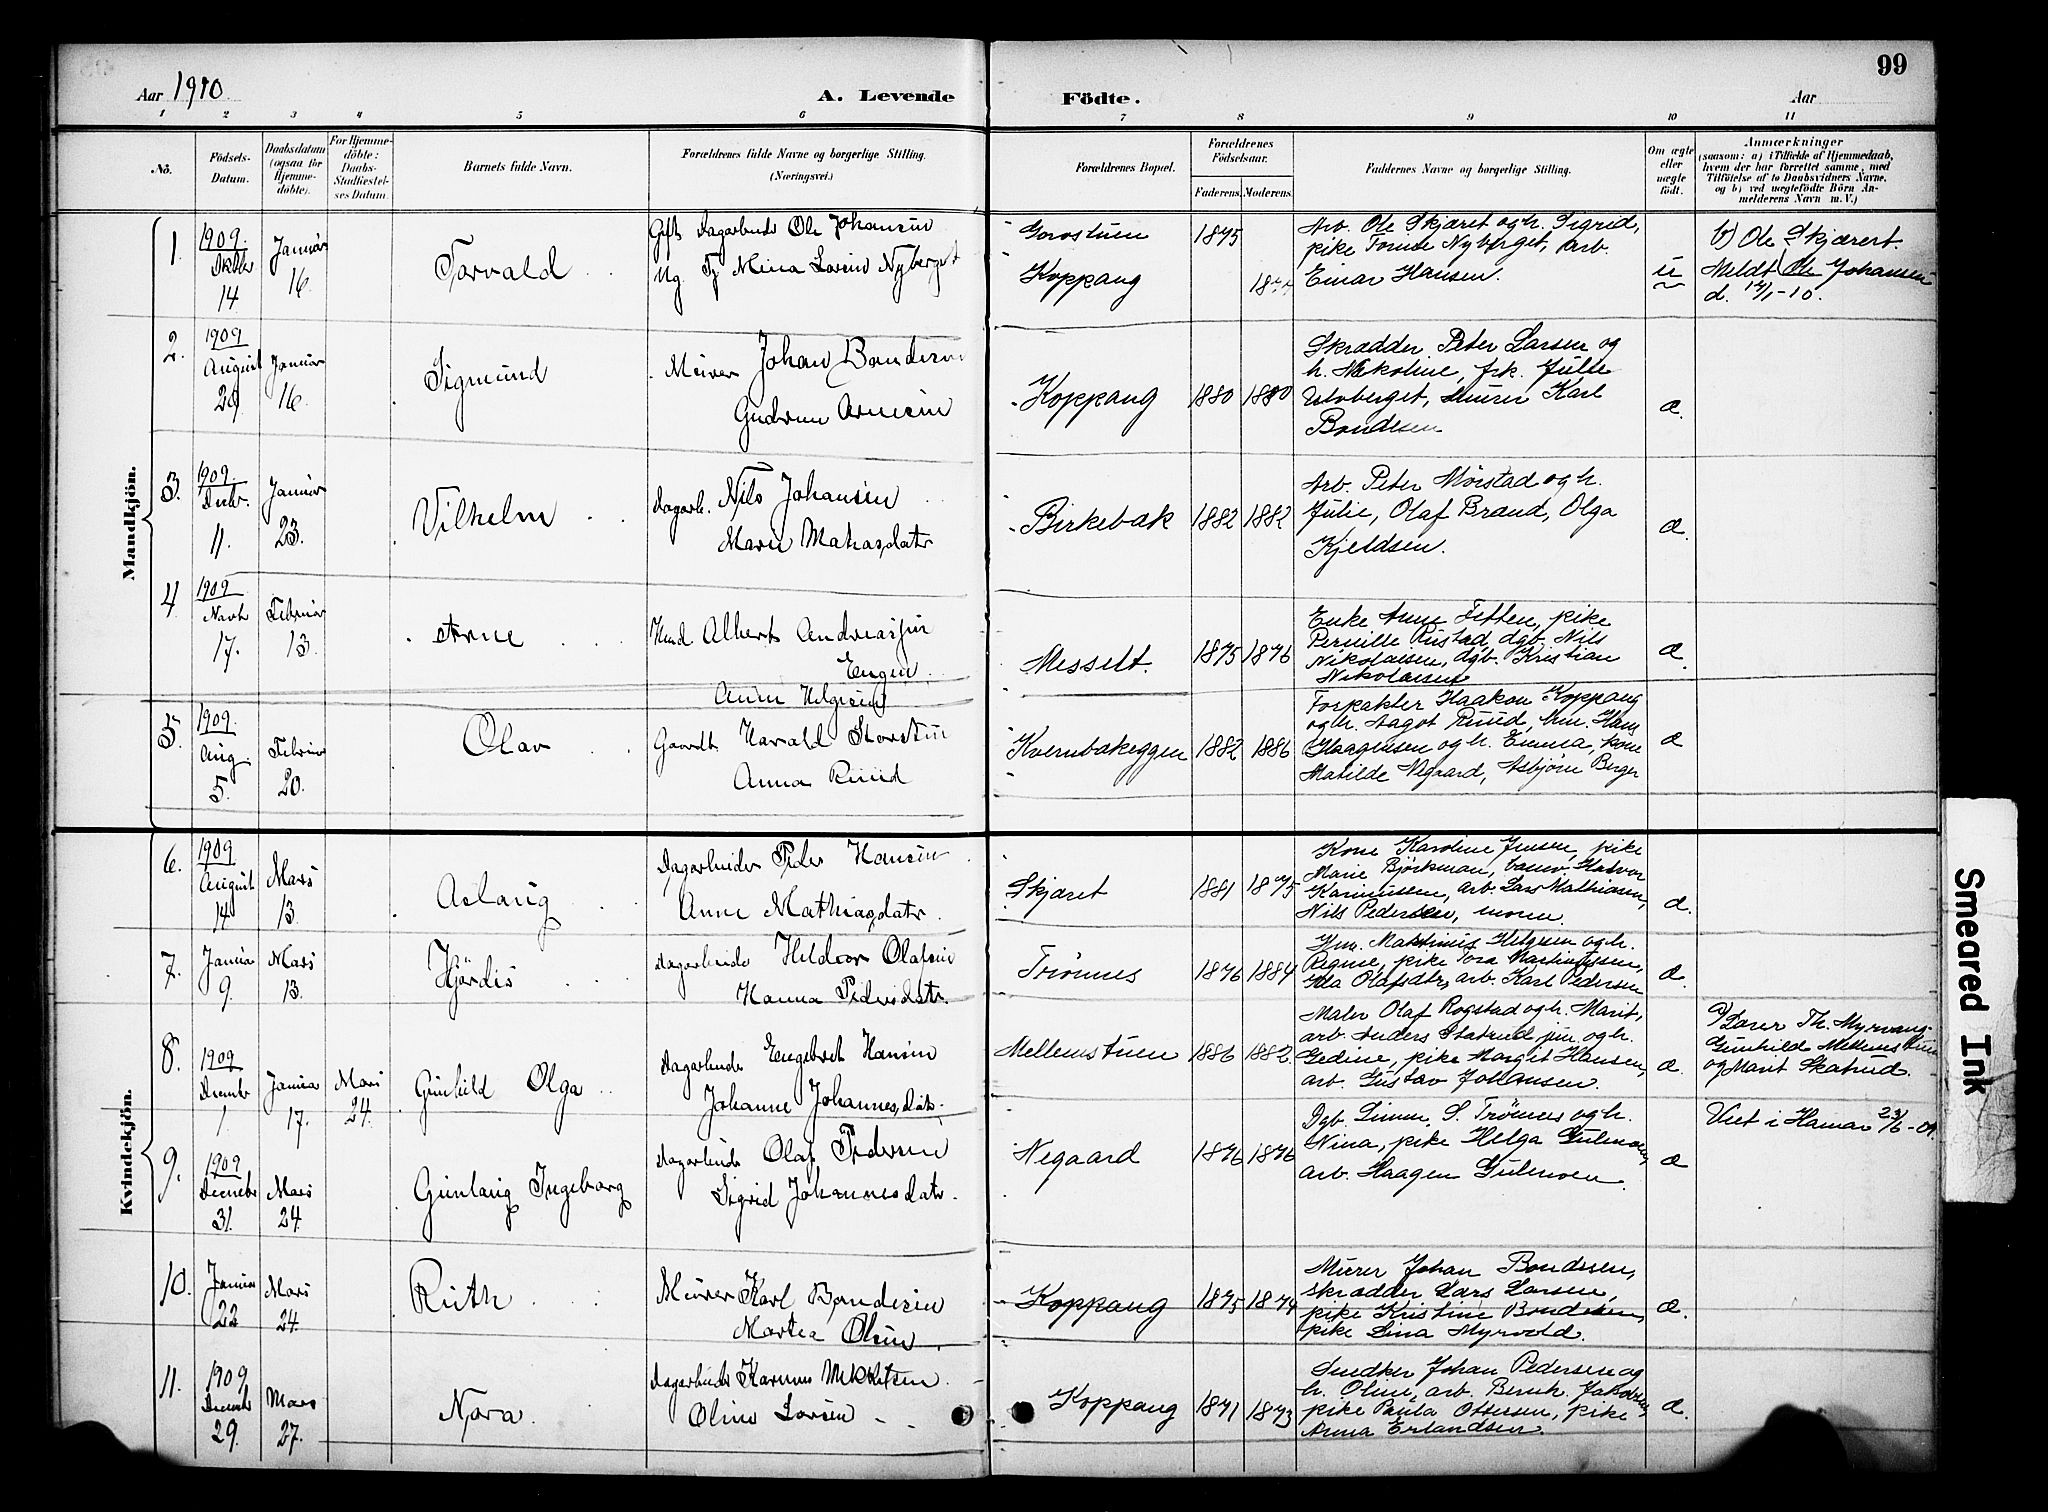 99
Aar 1910
A. Levende
Födte.
Aar
1 2 3 4 5 6 7 8 9 10 11
No.
Födsels-Datum.
Daabsdatum (ogsaa for Hjemme-döbte).
For Hjemme-döbte: Daabs-Stadfæstel-ses Datum.
Barnets fulde Navn.
Forældrenes fulde Navne og borgerlige Stilling. (Næringsvei.)
Forældrenes Bopæl.
Forældrenes Födselsaar.
Faderens. Moderens.
Faddernes Navne og borgerlige Stilling.
Om ægte eller uægte födt.
Anmærkninger
(saasom: a) i Tilfælde af Hjemmedaab, hvem der har forrettet samme, med Tilföielse af to Daabsvidners Navne, og b) ved uægtefödte Börn An-melderens Navn m. V.)
Mandkjön.
1. 1909. Oktbr 14 Januar 16. Torvald
Gift Dagarbeider Ole Johansen
Ug. Tj. Mina Lorine Nyberget
Gorostuen 1875
Koppang
Arb. Ole Skjæret og h. Sigrid,
pike Tomine Nyberget, Arb.
Einar Hansen.
u
b) Ole Skjæret.
Meldt Ole Johansen
d. 14/1-10.
2. 1909 August 29 Januar 16. Sigmund
Murer Johan Bondesen
Gudrun Arnesen
Koppang 1880 1880
Skrædder Peter Larsen og
h. Nikoline, frk. Julie
Utvberget, Murer Karl
Bondesen
æ.
3. 1909. Decbr. 11. Januar 23. Vilhelm
Dagarb. Nils Johansen
Maren Mathiasdatr
Birkebak 1882 1882
Arb. Peter Mörstad og h.
Julie, Olaf Brænd, Olga
Kjeldsen.
æ.
4 1909 Novbr 17. Februar 13. Arne
Albert Andreassen
Engen.
Anne Helgesen
Messelt. 1875 1876
Enke Anne Tetten, pike
Pernille Rustad, dgb. Nils
Nikolaisen, dgb. Kristian
Nikolaisen
æ.
5. 1909. Aug. 5. Februar 20. Olav
Gaardb. Harald Storstuen
Anna Ruud
Kvernbakeggen 1882 1886
Forpakter Haakon Koppang
og h. Aagot Ruud, Hans
Haagensen og h. Emma, kone
Matilde Negaard, Asbjörn Berger
æ
Kvindekjön.
6. 1909 August 14 Mars 13. Aslaug
Dagarbeider Peder Hansen
Anne Mathiasdatr.
Skjæret 1881 1875
Kone Karoline Jensen, pike
Marie Björkman, banev. Halvor
Karinussen, arb. Lars Mathiasen,
Nils Pedersen, moren
æ.
7. Januar 9. Mars 13. Hjördis
Dagarbeider Haldor Olafsen
Hanna Pedersdatr.
Trönnes 1876 1884
Martinus Helgesen og h.
Regine, pike Tora Martinussen,
Ida Olafsdtr, arb. Karl Pedersen
æ.
8. 1909 Decembr 1. Januar 17. Mars 24. Gunhild Olga
Dagarbeider Engebret Hansen
Johanne Johannesdatr.
Mellemstuen 1886 1882.
Maler Olaf Rogstad og h. Marit,
arb. Anders Skatrud jun. og h.
Gedine, pike Margit Hansen,
arb. Gustav Johansen.
æ.
a) Lærer Th. Myrvang.
Gunhild Mellemstuen
og Marit Skatrud.
9. 1909 Decembr 31. Mars 24. Gunlaug Ingeborg
Dagarbeider Olaf Pedersen
Sigrid Johannesdatr.
Negaard 1876 1876
Dgb. Simen S. Trönnes og h.
Nina, pike Helga Gulmoen,
arb. Haagen Gulmoen.
æ
Viet i Hamar 23/6-09.
10. Januar 22 Mars 24. Ruth
Murer Karl Bondesen
Martea Olsen.
Koppang 1875 1874
Murer Johan Bondesen,
skrædder Lars Larsen,
pike Kristine Bondesen,
pike Lina Myrvold.
æ.
11. 1909 Decembr 29. Mars 27. Nora.
Dagarbeider Karinus Mikkelsen
Oline Larsen
Koppang 1871 1873
Snedker Johan Pedersen og
h. Oline, arb. Bernh. Jakobsen,
pike Paula Ottersen, pike
Anna Erlandsen.
æ.
Smeared Ink